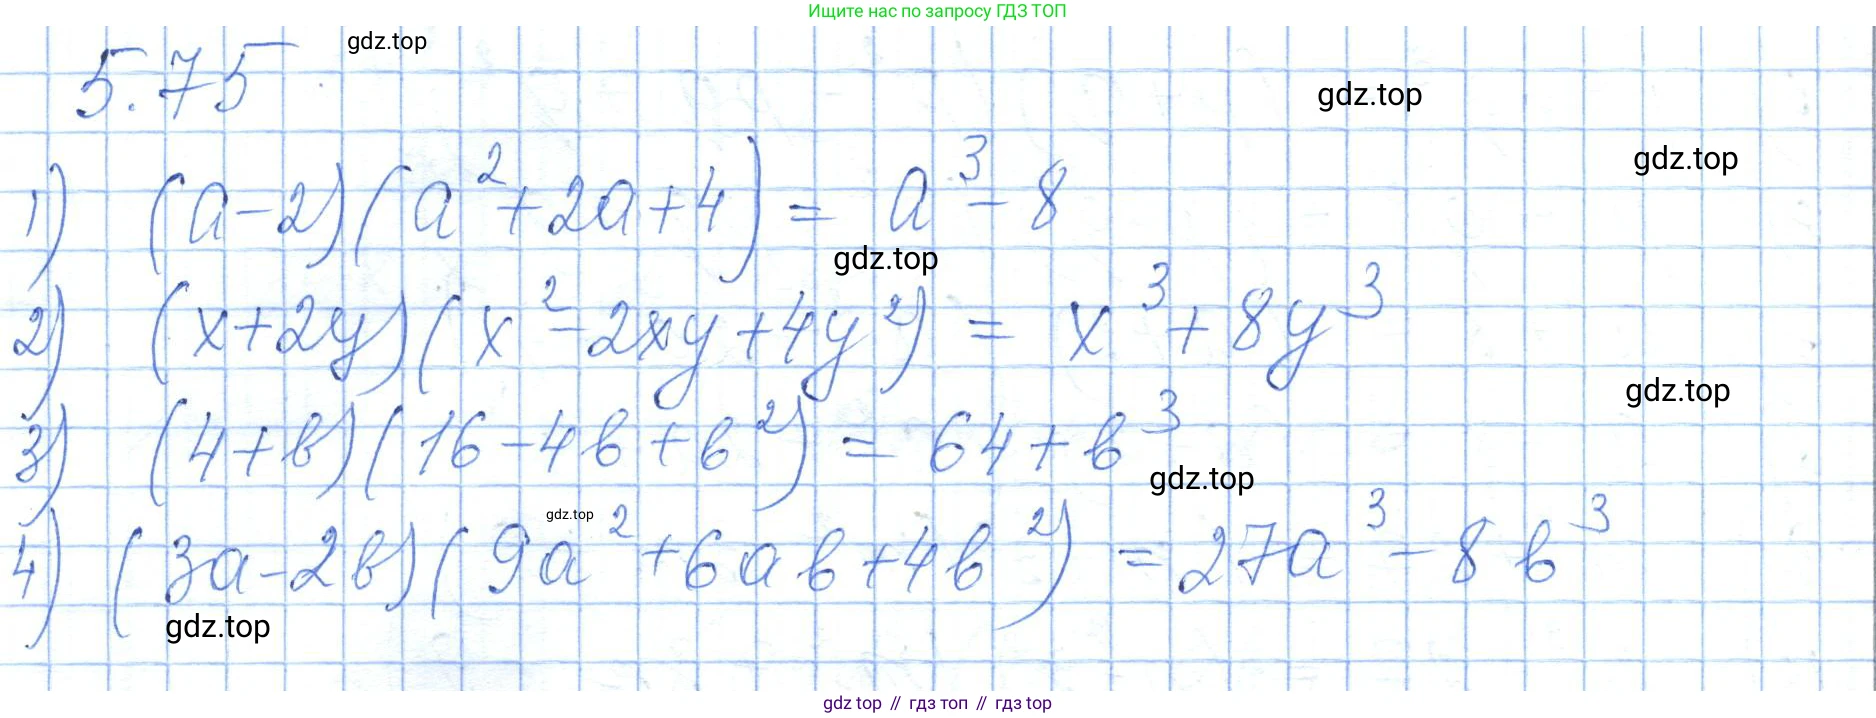 Ищите нас по запросу ГДЗ ТОП
5.75 gdz.top
gdz.top
gdz.top
1) (a-2)(a²+2a+4) = a³-8
gdz.top
2) (x+2y)(x²-2xy+4y²) = x³+8y³
gdz.top
3) (4+в)(16-4в+в²) = 64+в³
gdz.top
gdz.top
4) (3a-2в)(9a²+6aв+4в²) = 27a³-8в³
gdz.top
gdz top // гдз топ // гдз top